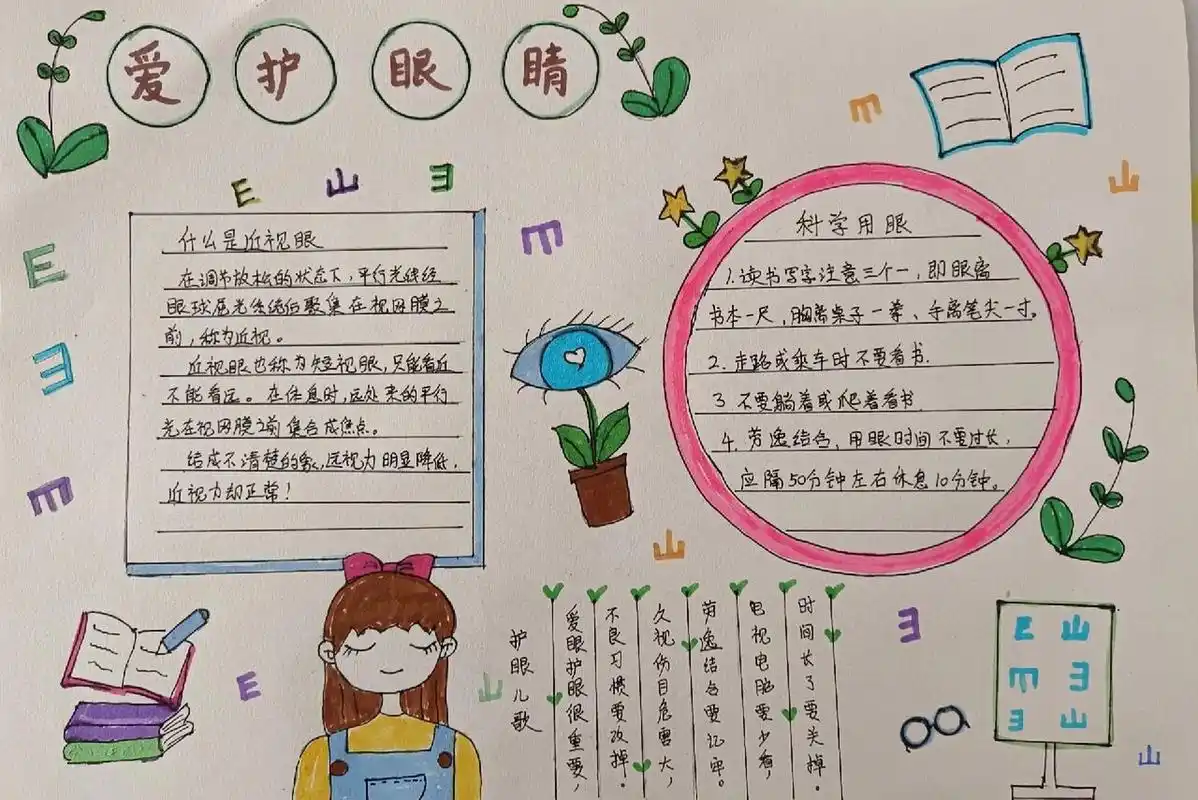 爱护眼睛
什么是近视眼
在调节放松的状态下,平行光线经
眼球屈光系统后聚集在视网膜之
前,称为近视。
近视眼也称为短视眼,只能看近
不能看远。在休息时,远处来的平行
光在视网膜之前集合成焦点。
结成不清楚的象,远视力明显降低,
近视力却正常!
科学用眼
1.读书写字注意三个一,即眼离
书本一尺,胸离桌子一拳、手离笔尖一寸。
2.走路或乘车时不要看书.
3.不要躺着或爬着看书
4.劳逸结合,用眼时间不要过长,
应隔50分钟左右休息10分钟。
护眼儿歌
爱眼护眼很重要,
不良习惯要改掉。
久视伤目危害大,
劳逸结合要记牢。
电视电脑要少看,
时间长了要关掉。
E 山 ヨ
E
ヨ
m
m
m
山
山
E
山
ヨ
山
E 山
m ヨ
ヨ 山